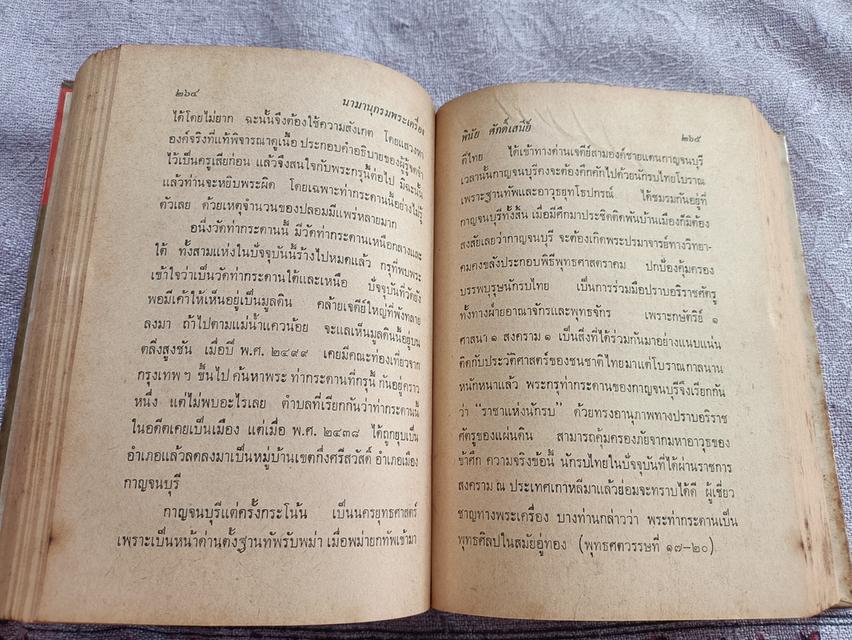 ๒๖๔
นามานุกรมพระเครื่อง
ได้โดยไม่ยาก ฉะนั้นจึงต้องใช้ความสังเกต โดยแสวงหา
องค์จริงที่แท้พิจารณาดูเนื้อ ประกอบคำอธิบายของผู้รู้จดจำ
ไว้เป็นครูเสียก่อน แล้วจึงสนใจกับพระกรุนี้ต่อไป มิฉะนั้น
แล้วท่านจะหยิบพระผิด โดยเฉพาะท่ากระดานนี้อย่างไม่รู้
ตัวเลย ด้วยเหตุจำนวนของปลอมมีแพร่หลายมาก
อนึ่งวัดท่ากระดานนี้ มีวัดท่ากระดานเหนือกลางและ
ใต้ ทั้งสามแห่งในปัจจุบันนี้ร้างไปหมดแล้ว กรุที่พบพระ
เข้าใจว่าเป็นวัดท่ากระดานใต้และเหนือ ปัจจุบันที่วัดยัง
พอมีเค้าให้เห็นอยู่เป็นมูลดิน คล้ายเจดีย์ใหญ่ที่พังทลาย
ลงมา ถ้าไปตามแม่น้ำแควน้อย จะแลเห็นมูลดินนั้นอยู่บน
ตลิ่งสูงชัน เมื่อปี พ.ศ. ๒๔๙๙ เคยมีคณะท่องเที่ยวจาก
กรุงเทพฯ ขึ้นไป ค้นหาพระ ท่ากระดานที่กรุนี้ กันอยู่คราว
หนึ่ง แต่ไม่พบอะไรเลย ตำบลที่เรียกกันว่าท่ากระดานนั้น
ในอดีตเคยเป็นเมือง แต่เมื่อ พ.ศ. ๒๔๓๘ ได้ถูกยุบเป็น
อำเภอแล้วลดลงมาเป็นหมู่บ้านเขตกิ่งศรีสวัสดิ์ อำเภอเมือง
กาญจนบุรี
กาญจนบุรีแต่ครั้งกระโน้น เป็นนครยุทธศาสตร์
เพราะเป็นหน้าด่านตั้งฐานทัพรับพม่า เมื่อพม่ายกทัพเข้ามา
พินัย ศักดิ์เสนีย์
๒๖๕
ตีไทย ได้เข้าทางด่านเจดีย์สามองค์ชายแดนกาญจนบุรี
เวลานั้นกาญจนบุรีคงจะต้องคึกคักไปด้วยนักรบไทยโบราณ
เพราะฐานทัพและอาวุธยุทโธปกรณ์ ได้ชมรมกันอยู่ที่
กาญจนบุรีทั้งสิ้น เมื่อมีศึกมาประชิดติดพันบ้านเมืองก็มิต้อง
สงสัยเลยว่ากาญจนบุรี จะต้องเกิดพระปรมาจารย์ทางวิทยา-
คมคงขลังประกอบพิธีพุทธศาสตราคม ปกป้องคุ้มครอง
บรรพบุรุษนักรบไทย เป็นการร่วมมือปราบอริราชศัตรู
ทั้งทางฝ่ายอาณาจักรและพุทธจักร เพราะกษัตริย์ ๑
ศาสนา ๑ สงคราม ๑ เป็นสิ่งที่ได้ร่วมกันมาอย่างแนบแน่น
ติดกับประวัติศาสตร์ของชนชาติไทยมาแต่โบราณกาลนาน
หนักหนาแล้ว พระกรุท่ากระดานของกาญจนบุรีจึงเรียกกัน
ว่า “ราชาแห่งนักรบ” ด้วยทรงอานุภาพทางปราบอริราช
ศัตรูของแผ่นดิน สามารถคุ้มครองภัยจากมหาอาวุธของ
ข้าศึก ความจริงข้อนี้ นักรบไทยในปัจจุบันที่ได้ผ่านราชการ
สงคราม ณ ประเทศเกาหลีมาแล้วย่อมจะทราบได้ดี ผู้เชี่ยว
ชาญทางพระเครื่อง บางท่านกล่าวว่า พระท่ากระดานเป็น
พุทธศิลปในสมัยอู่ทอง (พุทธศตวรรษที่ ๑๗–๒๐)